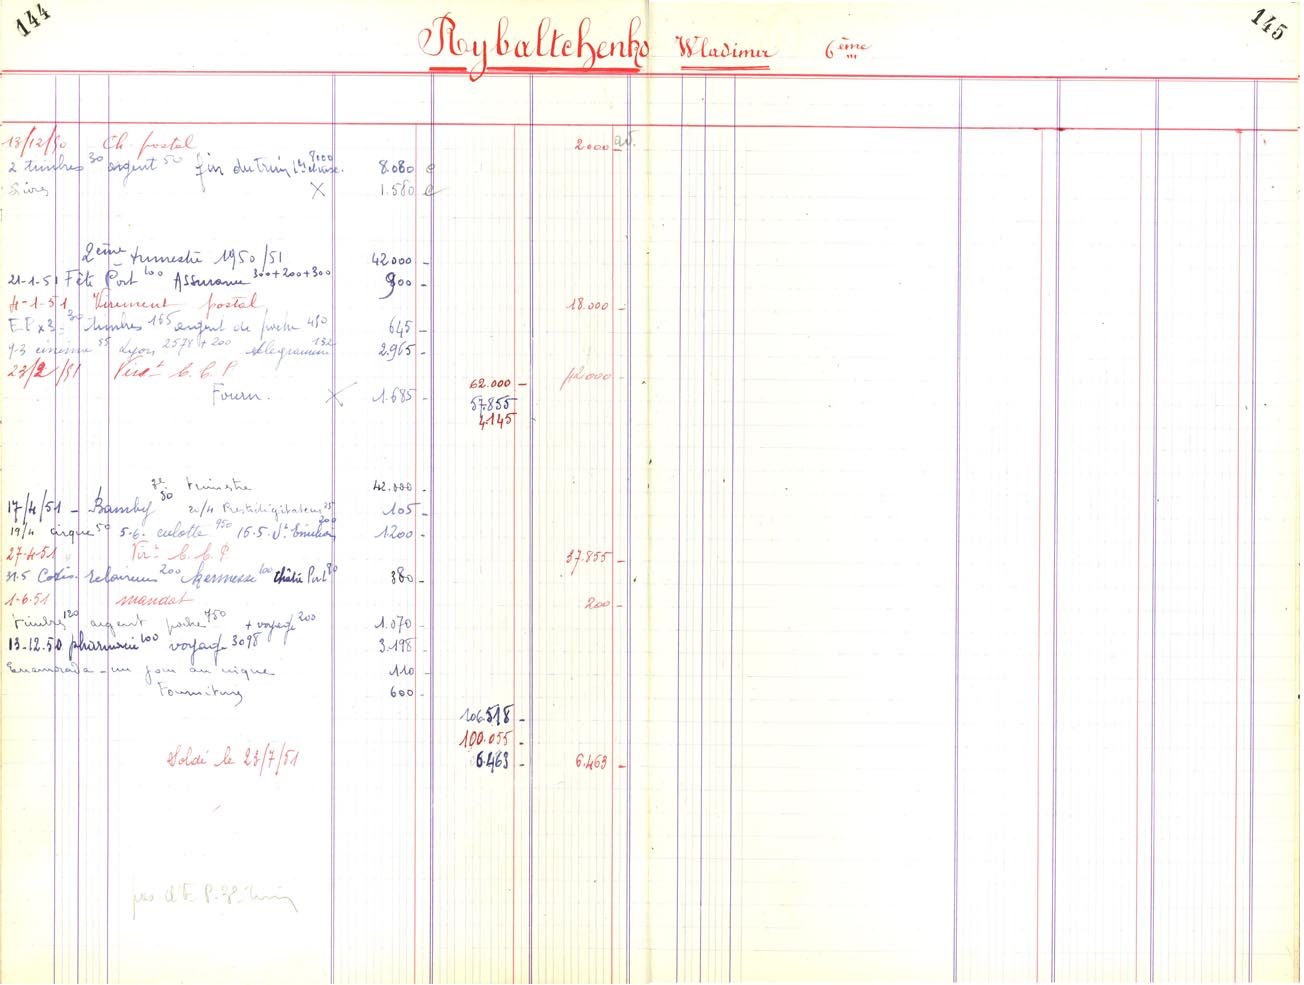 144
145
Rybaltchenko Wladimir 6ème
13/12/50 Ch. postal 2000
2 timbres 30 argent 50 fin du trim 8000 8.080
Livres X 1.580
2ème trimestre 1950/51 42000 -
21-1-51 Fête Port 100 Assurance 300+200+300 900 -
4-1-51 Virement postal 18.000 -
E.P x 3 - 30 timbres 165 argent de poche 450 645 -
cinéma 55 Lyon 2578 + 200 télégramme 132 2.965 -
23/2/51 Virt C.C.P 42000 -
62.000 -
Fourn. X 1.685 -
57.855
4.145
3e trimestre 42.000 -
17/4/51 - Bamby 80 20/4 Prestidigitateur 25 105 -
19/4 cirque 50 5.6. culotte 950 15.5. 200 1200 -
27-4-51 Virt C.C.P 37.855 -
31.5 Cotis. éclaireurs 200 kermesse 100 théâtre Port 80 380 -
1-6.51 mandat 200 -
timbres 120 argent poche 750 + voyage 200 1.070 -
13-12.50 pharmacie 100 voyage 3098 3.198 -
Enamorada - un jour au cirque 110 -
Fournitures 600 -
106.518 -
100.055 -
6.463 -
Soldé le 23/7/51 6.463 -
pas